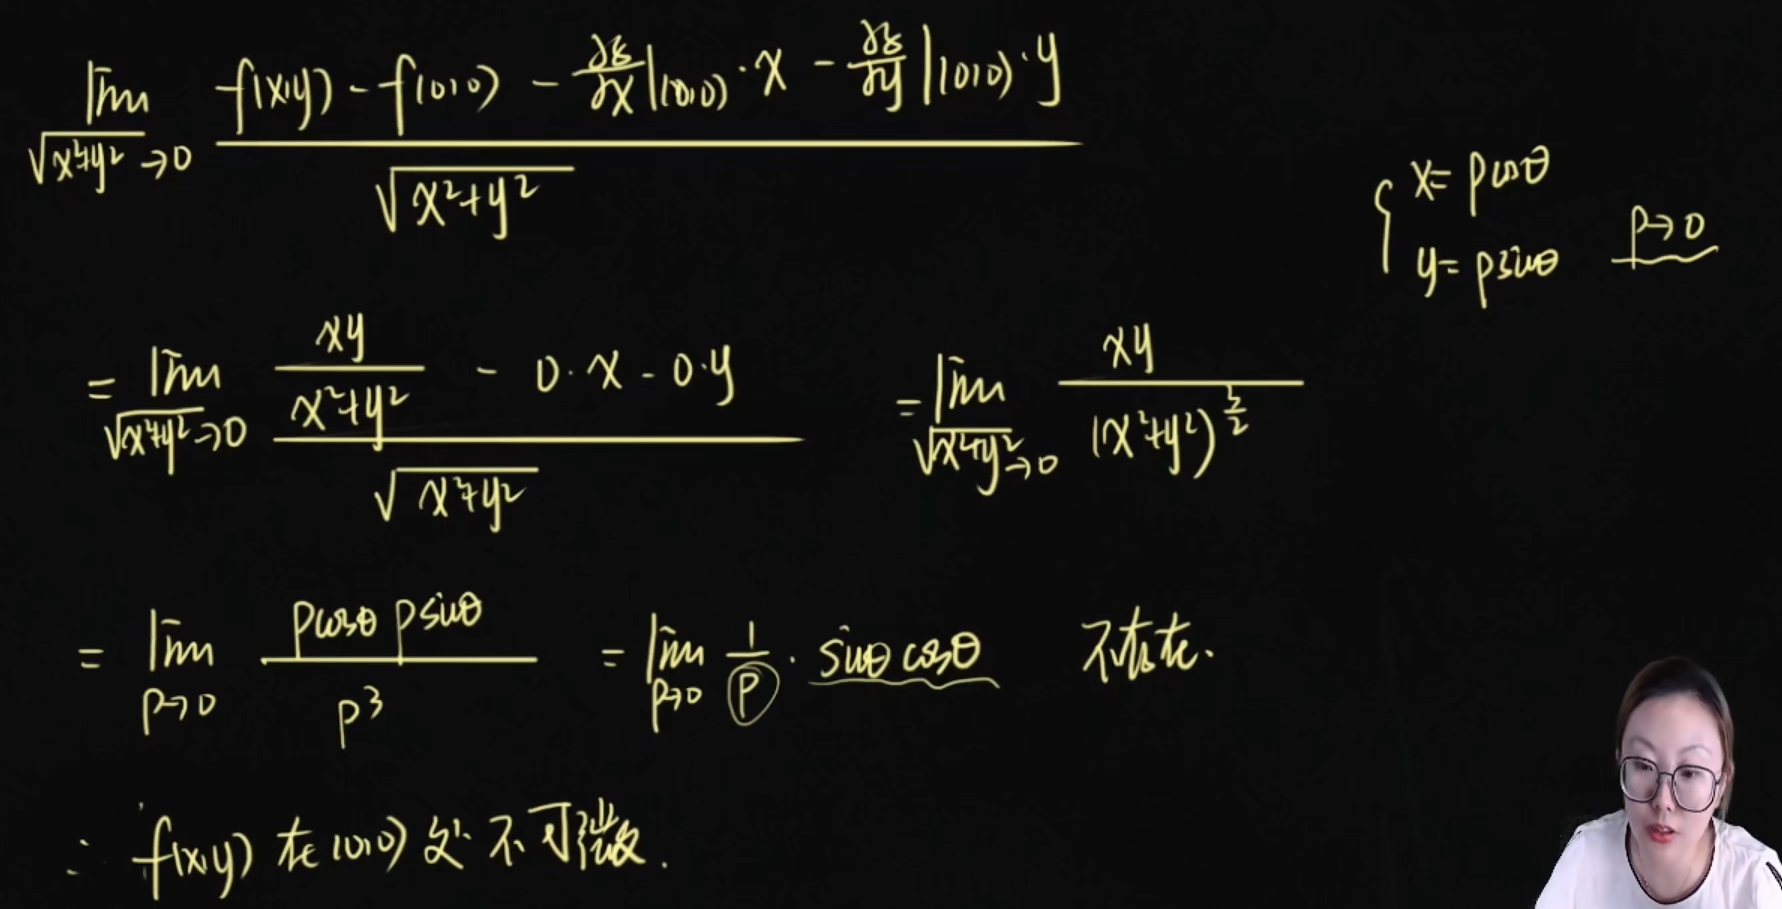 lim_{√(x²+y²)→0} (f(x,y) - f(0,0) - ∂z/∂x|(0,0)·x - ∂z/∂y|(0,0)·y) / √(x²+y²)
{ x=ρcosθ
y=ρsinθ ρ→0
= lim_{√(x²+y²)→0} (xy/(x²+y²) - 0·x - 0·y) / √(x²+y²) = lim_{√(x²+y²)→0} xy / (x²+y²)^{3/2}
= lim_{ρ→0} ρcosθ ρsinθ / ρ³ = lim_{ρ→0} 1/ρ · sinθ cosθ 不存在.
∴ f(x,y) 在(0,0) 处不可微.